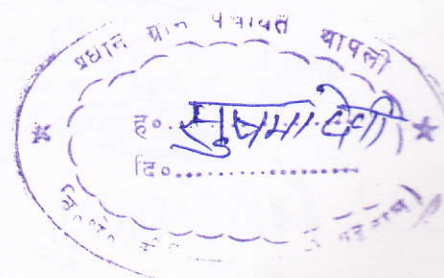 प्रधान ग्राम पंचायत थापली
ह०. सुषमा देवी
दि०..................
वि०खं०